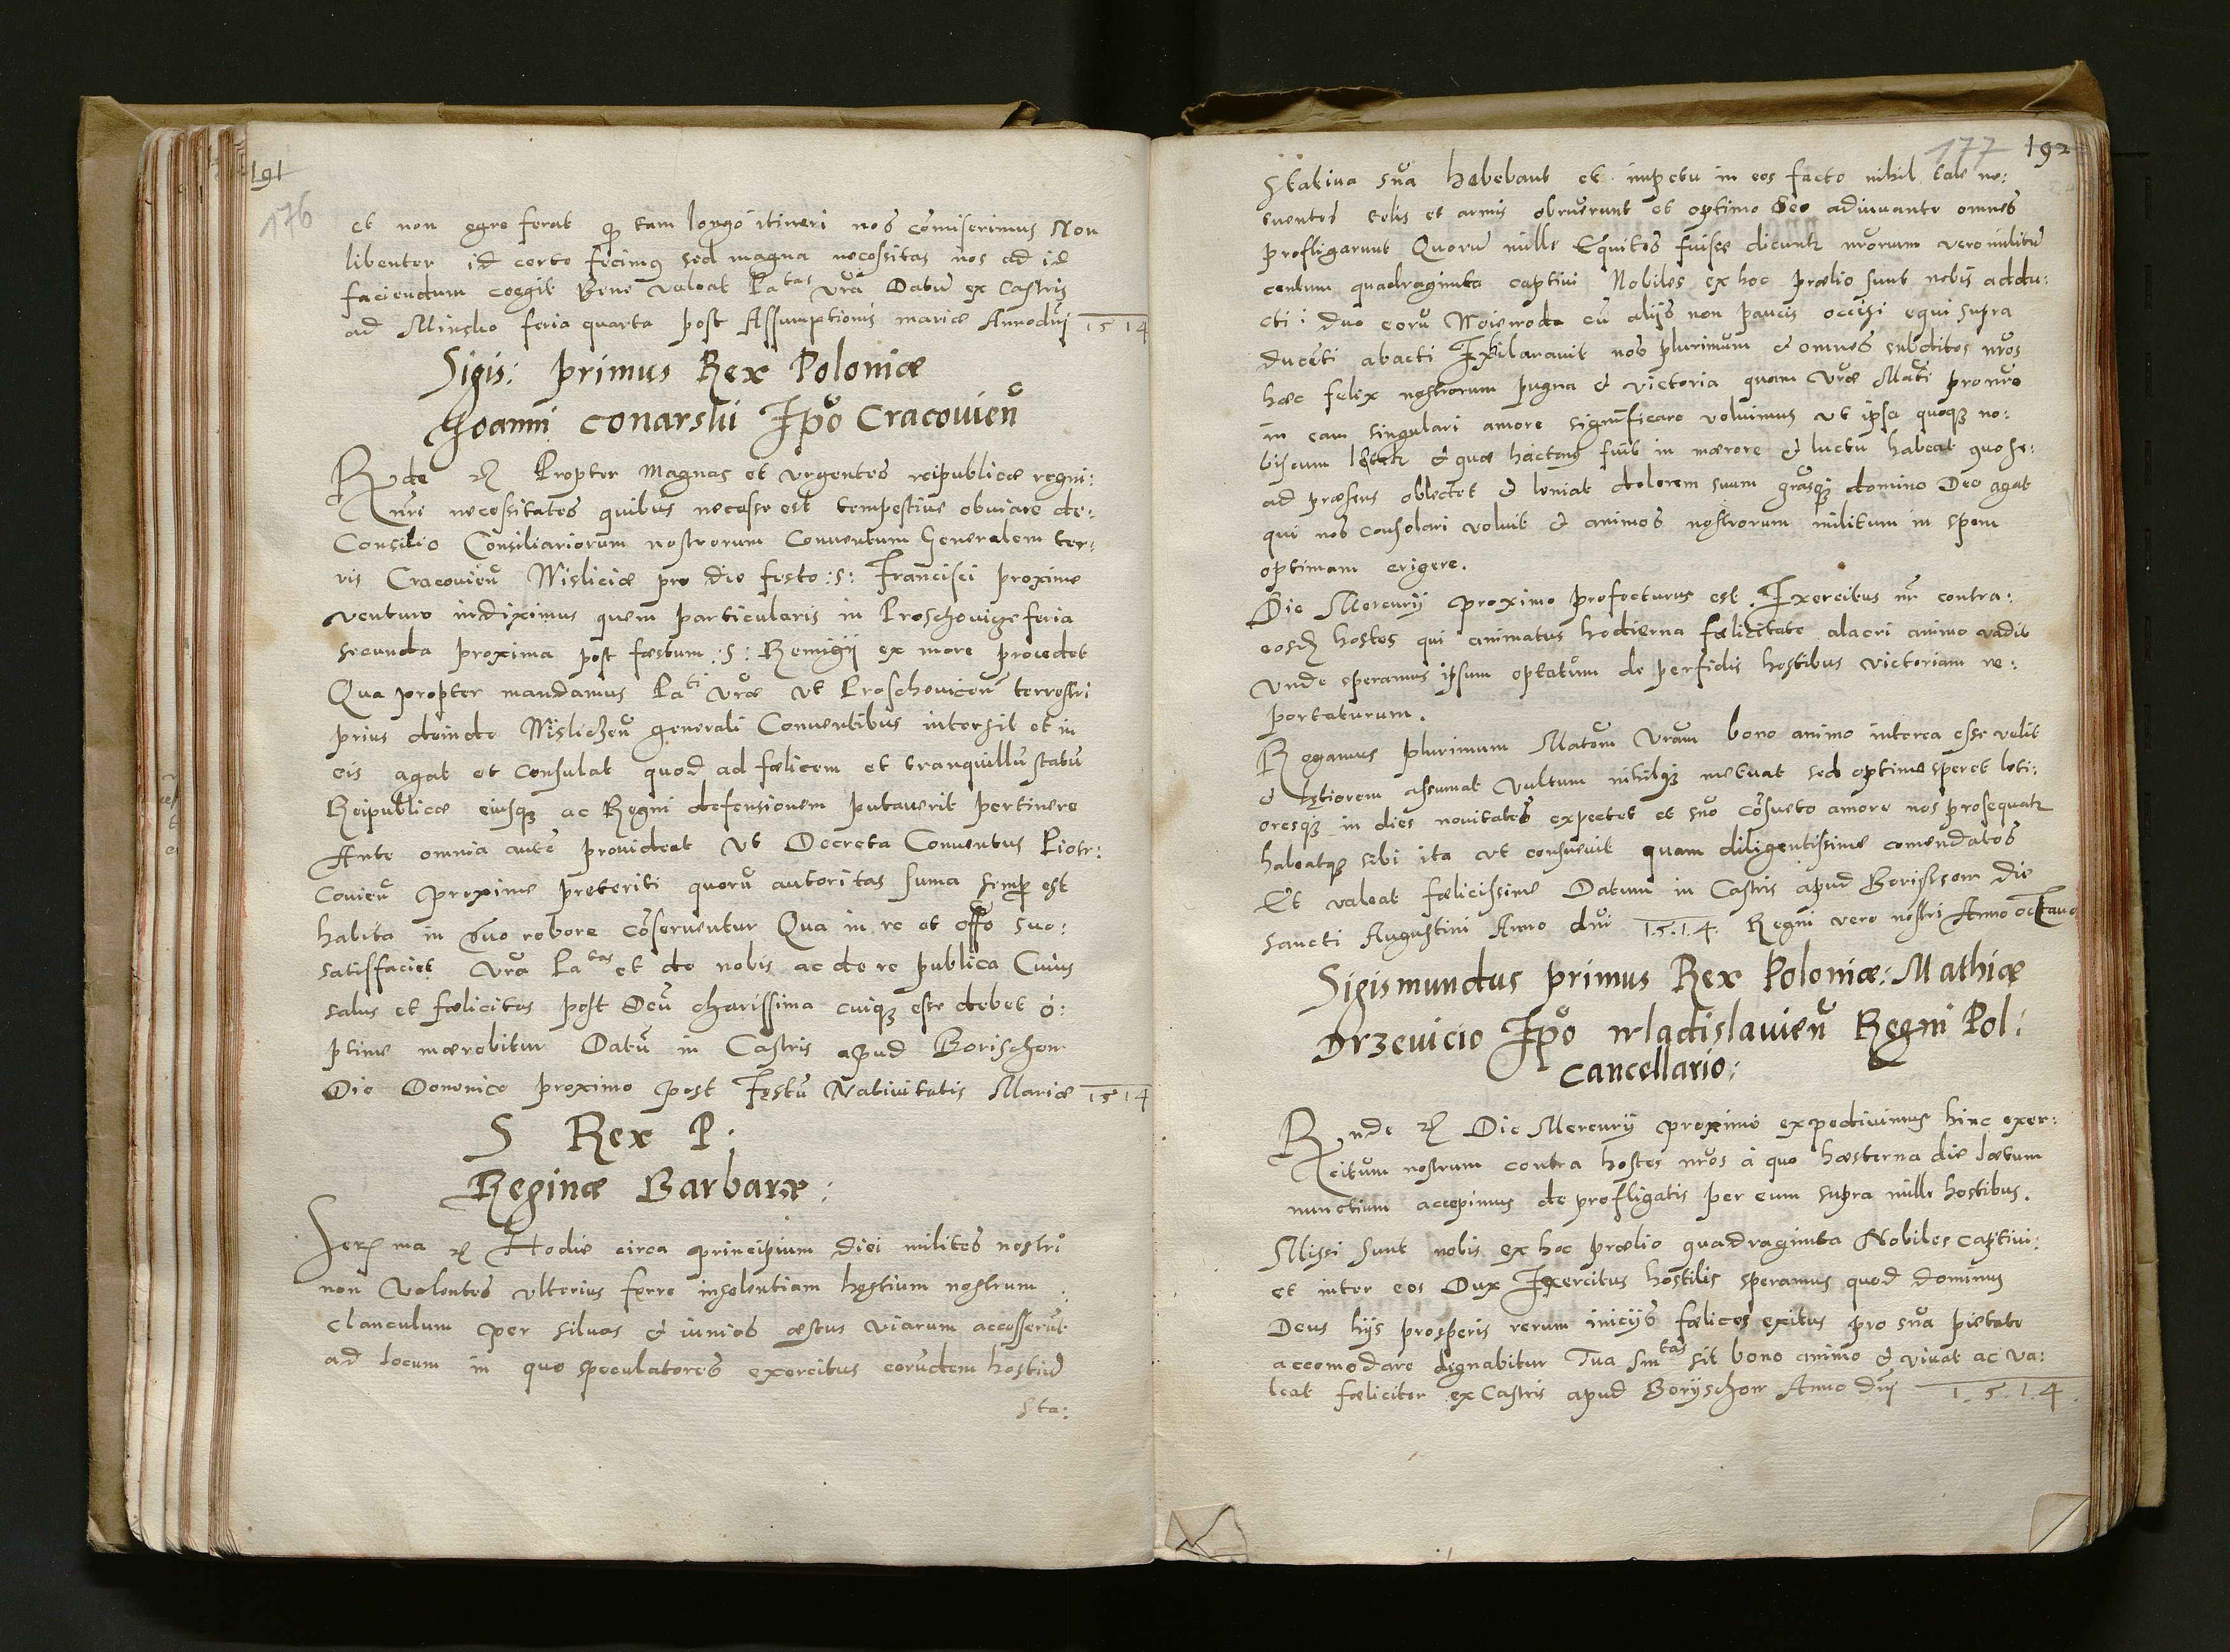 191
176
et non egre ferat q tam longo itineri nos comiserimus Non
libenter id certe fecimus sed magna necessitas nos ad id
faciendum coegit Bene valeat Patas vra Datu ex Castris
ad Minsko feria quarta post Assumptionis mariæ Anno dnj 1514
Sigis: primus Rex Poloniæ
Joanni conarski Epo Cracovien
Rde etc Propter magnas et vrgentes reipublicæ regni:
nre necessitates quibus necesse est tempestiue obuiare de:
Consilio Consiliariorum nostrorum Conuentum Generalem ter:
ris Cracouien Wisliciæ pro die festo :S: Francisci proxime
venturo indiximus quem particularis in Proschouicze feria
secunda proxima post fæstum :S: Remigij ex more procedet
Qua propter mandamus Pati vræ vt Proschouicen terrestri
prius deinde Wisliczen generali Conuentibus intersit et in
eis agat et consulat quod ad fælicem et tranquillu statu
Reipublicæ eiusq ac Regni defensionem putauerit pertinere
Ante omnia aute prouideat vt Decreta Conuentus Piotr:
couien proxime preteriti quoru autoritas suma semp est
habita in suo robore coseruentur Qua in re et offo suo:
satisfaciet vra Patas et de nobis ac de re publica Cuius
salus et fælicitas post Deu charissima cuiq esse debet o:
ptime mærebitur Datu in Castris apud Borischow
Die Domenico proximo post Festu Natiuitatis Mariæ 1514
S Rex P:
Reginæ Barbaræ:
Serma etc Hodie circa principium diei milites nostri
non valentes vlterius ferre insolentiam hostium nostrum
clanculum per siluas & iunios æstus viarum accesserut
ad locum in quo speculatores exercitus eorudem hostiu
Sta:
177 192
Statiua sua habebant et impetu in eos facto nihil tale no:
euentes telis et armis obruerunt et optimo Deo adiuuante omnes
profligarunt Quoru mille Equites fuisse dicuntr nrorum vero militu
centum quadraginta captiui Nobiles ex hoc prælio sunt nobis addu:
cti i duo eoru Woiewoda cu alijs non paucis occisi equi supra
duceti abacti Exhilarauit nos plurimum & omnes subditos nros
hæc felix nostrorum pugna & victoria quam vræ Mati pro nro
in eam singulari amore significare voluimus vt ipsa quoq no:
biscum letetr & quæ hactens fuit in mærore & luctu habeat quo se:
ad præsens oblectet & leniat dolorem suum grasq domino Deo agat
qui nos consolari voluit & animos nostrorum militum in spem
optimam erigere.
Die Mercurij proximo profecturus est Exercitus nr contra:
eosd hostes qui animatus hodierna fælicitate alacri animo vadit
vnde speramus ipsum optatum de perfidis hostibus victoriam re:
portaturum.
Rogamus plurimum Matem vram bono animo interea esse velit
& lętiorem assumat vultum nihilq metuat sed optime speret leti:
oresq in dies nouitates expectet et suo cosueto amore nos prosequatr
habeatq sibi ita vt consueuit quam diligentissime comendatos
Et valeat fælicissime Datum in Castris apud Borissow die
Sancti Augustini Anno dni 1.5.1.4. Regni vero nostri Anno octauo
Sigismundus primus Rex Poloniæ: Mathiæ
Drzeuicio Epo wladislauien Regni Pol:
cancellario:
Rnde etc Die Mercurij proximo expediuimus hinc exer:
citum nostrum contra hostes nros à quo hæsterna die lætum
nunctium accepimus de profligatis per eum supra mille hostibus.
Missi sunt nobis ex hoc prælio quadraginta Nobiles captiui:
et inter eos Dux Exercitus hostilis speramus quod dominus
Deus hijs prosperis rerum inicijs fælices exitus pro sua pietate
accomodare dignabitur Tua Sintas sit bono animo & viuat ac va:
leat fæliciter ex Castris apud Borijschow Anno Dnj 1.5.1.4.